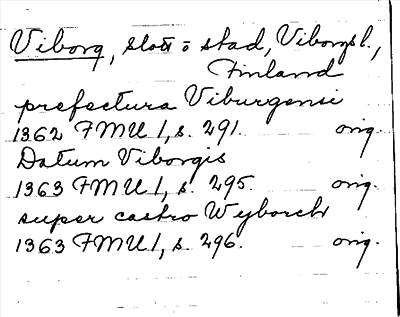 Viborg, slott o stad, Viborgs l.,
Finland
prefectura Viburgensi
1362 FMU I, s. 291. orig.
Datum Viborgis
1363 FMU I, s. 295. orig.
super castro Wyborch
1363 FMU I, s. 296. orig.